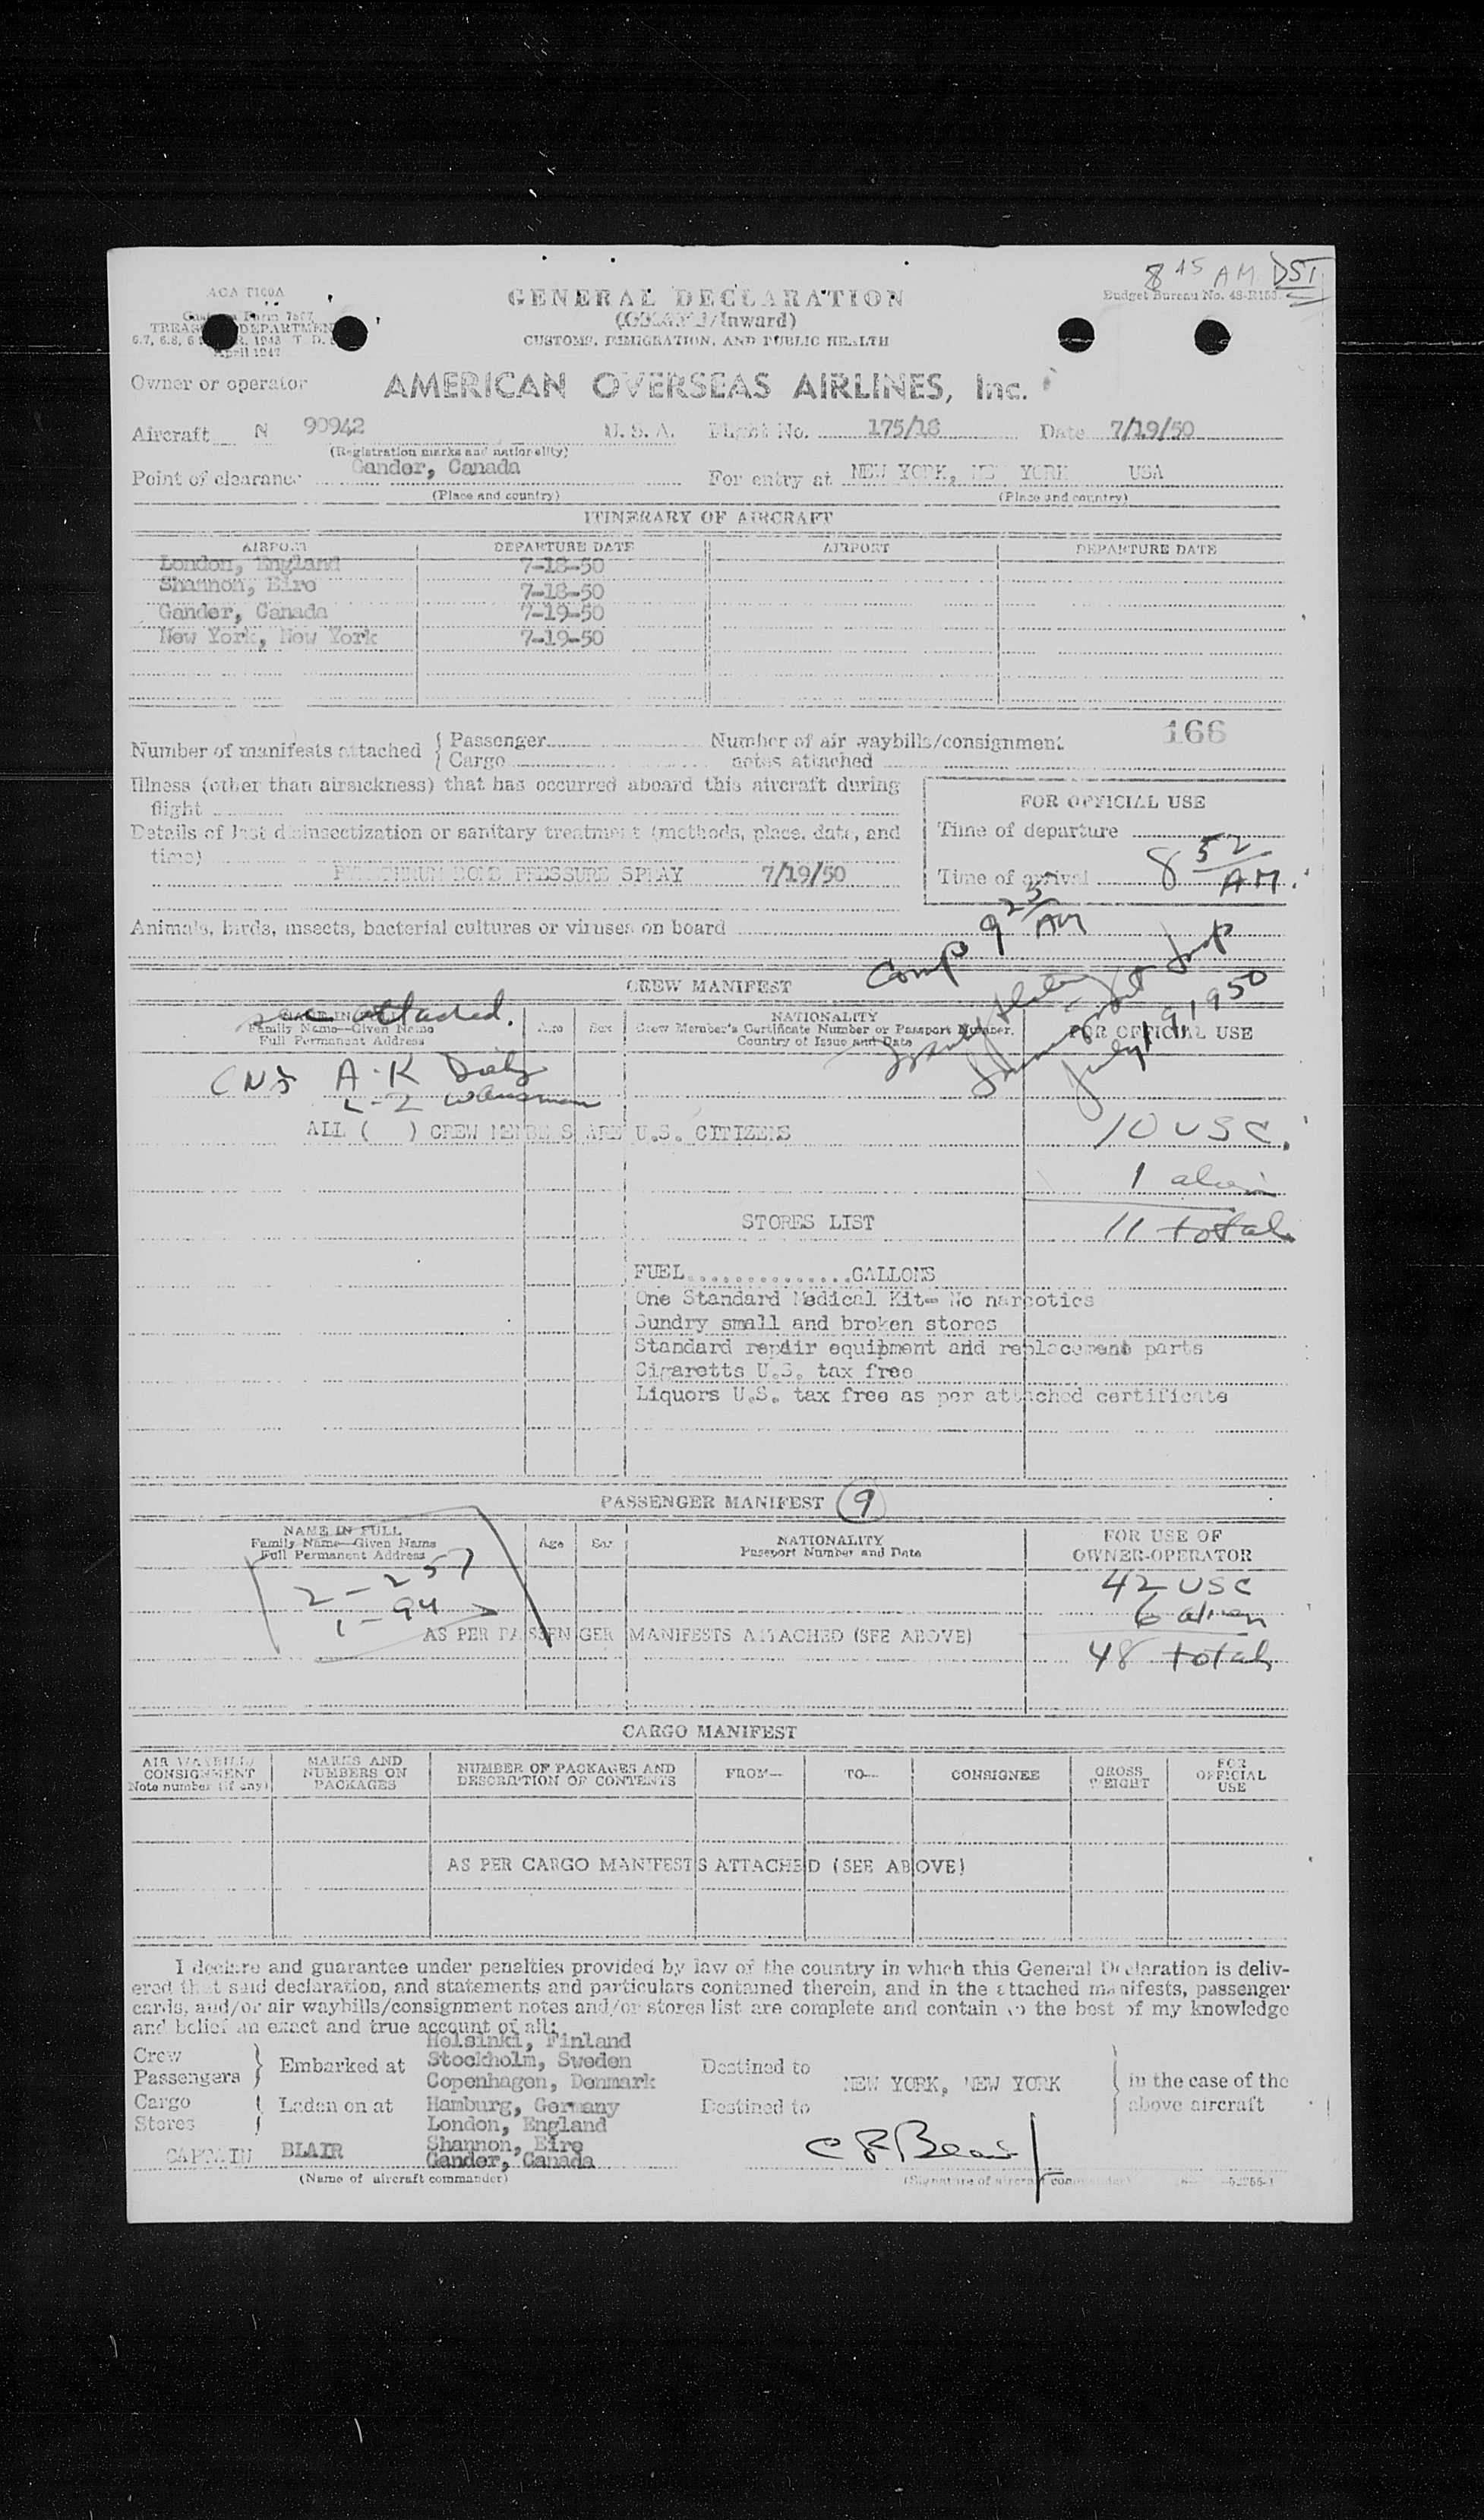 8 45 A.M. DST
Budget Bureau No.
GENERAL DECLARATION
/Inward)
CUSTOMS, IMMIGRATION, AND PUBLIC HEALTH
TREASURY DEPARTMENT
April 1947
Owner or operator AMERICAN OVERSEAS AIRLINES, Inc.
Aircraft N 90942 U. S. A. Flight No. 175/18 Date 7/19/50
(Registration marks and nationality)
Point of clearance Gander, Canada For entry at NEW YORK, NEW YORK USA
(Place and country) (Place and country)
ITINERARY OF AIRCRAFT
AIRPORT DEPARTURE DATE AIRPORT DEPARTURE DATE
London, England 7-18-50
Shannon, Eire 7-18-50
Gander, Canada 7-19-50
New York, New York 7-19-50
166
Number of manifests attached { Passenger Number of air waybills/consignment
{ Cargo notes attached
Illness (other than airsickness) that has occurred aboard this aircraft during
flight
FOR OFFICIAL USE
Details of last disinsectization or sanitary treatment (methods, place, date, and
time)
Time of departure
PYRETHRUM BOMB PRESSURE SPRAY 7/19/50
Time of arrival 8 52 AM.
Animals, birds, insects, bacterial cultures or viruses on board
Comp 9 25 AM
CREW MANIFEST
see attached.
Immigrant Insp
July 19, 1950
NAME IN FULL
Family Name—Given Name
Full Permanent Address
Age Sex
NATIONALITY
Crew Member's Certificate Number or Passport Number,
Country of Issue and Date
FOR OFFICIAL USE
A-K
L-Z
ALL ( ) CREW MEMBERS ARE U.S. CITIZENS 10 USC.
1 alien
STORES LIST 11 total
FUEL..............GALLONS
One Standard Medical Kit- No narcotics
Sundry small and broken stores
Standard repair equipment and replacement parts
Cigaretts U.S. tax free
Liquors U.S. tax free as per attached certificate
PASSENGER MANIFEST 9
NAME IN FULL
Family Name—Given Name
Full Permanent Address
Age Sex
NATIONALITY
Passport Number and Date
FOR USE OF
OWNER-OPERATOR
2-257 42 USC
1-94 6 alien
AS PER PASSENGER MANIFESTS ATTACHED (SEE ABOVE)
48 total
CARGO MANIFEST
AIR WAYBILL/
CONSIGNMENT
Note number (if any)
MARKS AND
NUMBERS ON
PACKAGES
NUMBER OF PACKAGES AND
DESCRIPTION OF CONTENTS
FROM— TO— CONSIGNEE
GROSS
WEIGHT
FOR
OFFICIAL
USE
AS PER CARGO MANIFESTS ATTACHED (SEE ABOVE)
I declare and guarantee under penalties provided by law of the country in which this General Declaration is deliv-
ered that said declaration, and statements and particulars contained therein, and in the attached manifests, passenger
cards, and/or air waybills/consignment notes and/or stores list are complete and contain to the best of my knowledge
and belief an exact and true account of all:
Helsinki, Finland
Crew
Passengers } Embarked at Stockholm, Sweden Destined to
Copenhagen, Denmark NEW YORK, NEW YORK } in the case of the
Cargo
Stores } Laden on at Hamburg, Germany Destined to above aircraft
London, England
CAPTAIN BLAIR Shannon, Eire C F Blair
Gander, Canada
(Name of aircraft commander) (Signature of aircraft commander)